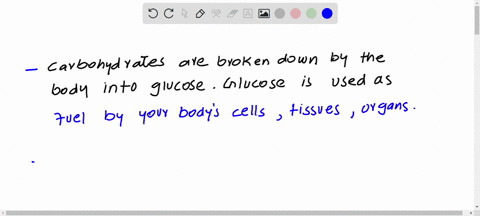 - Carbohydrates are broken down by the
body into glucose. Glucose is used as
fuel by your body's cells, tissues, organs.